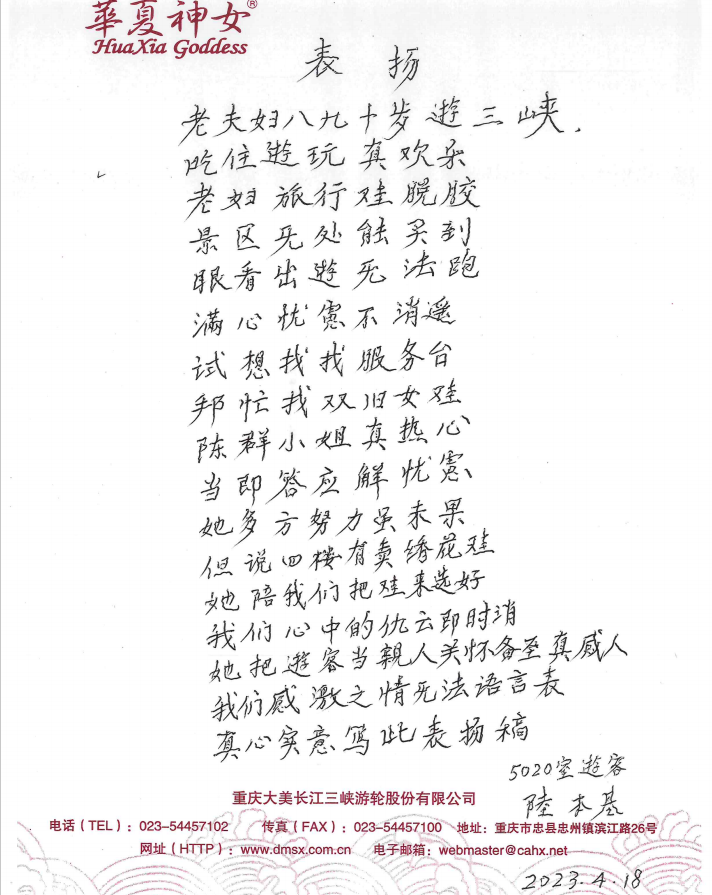 華夏神女®
HuaXia Goddess
表扬
老夫妇八九十岁遊三峡.
吃住遊玩真欢乐
老妇旅行鞋脱胶
景区无处能买到
眼看出遊无法跑
满心忧慮不消遥
试想找找服务台
邦忙找双旧女鞋
陈群小姐真热心
当即答应解忧慮
她多方努力虽未果
但说四楼有卖绣花鞋
她陪我们把鞋来选好
我们心中的仇云即时消
她把遊客当親人关怀备至真感人
我们感激之情无法语言表
真心实意写此表扬稿
5020室遊客
陸本基
重庆大美长江三峡游轮股份有限公司
电话(TEL):023-54457102 传真(FAX):023-54457100 地址:重庆市忠县忠州镇滨江路26号
网址(HTTP):www.dmsx.com.cn 电子邮箱:webmaster@cahx.net
2023.4.18